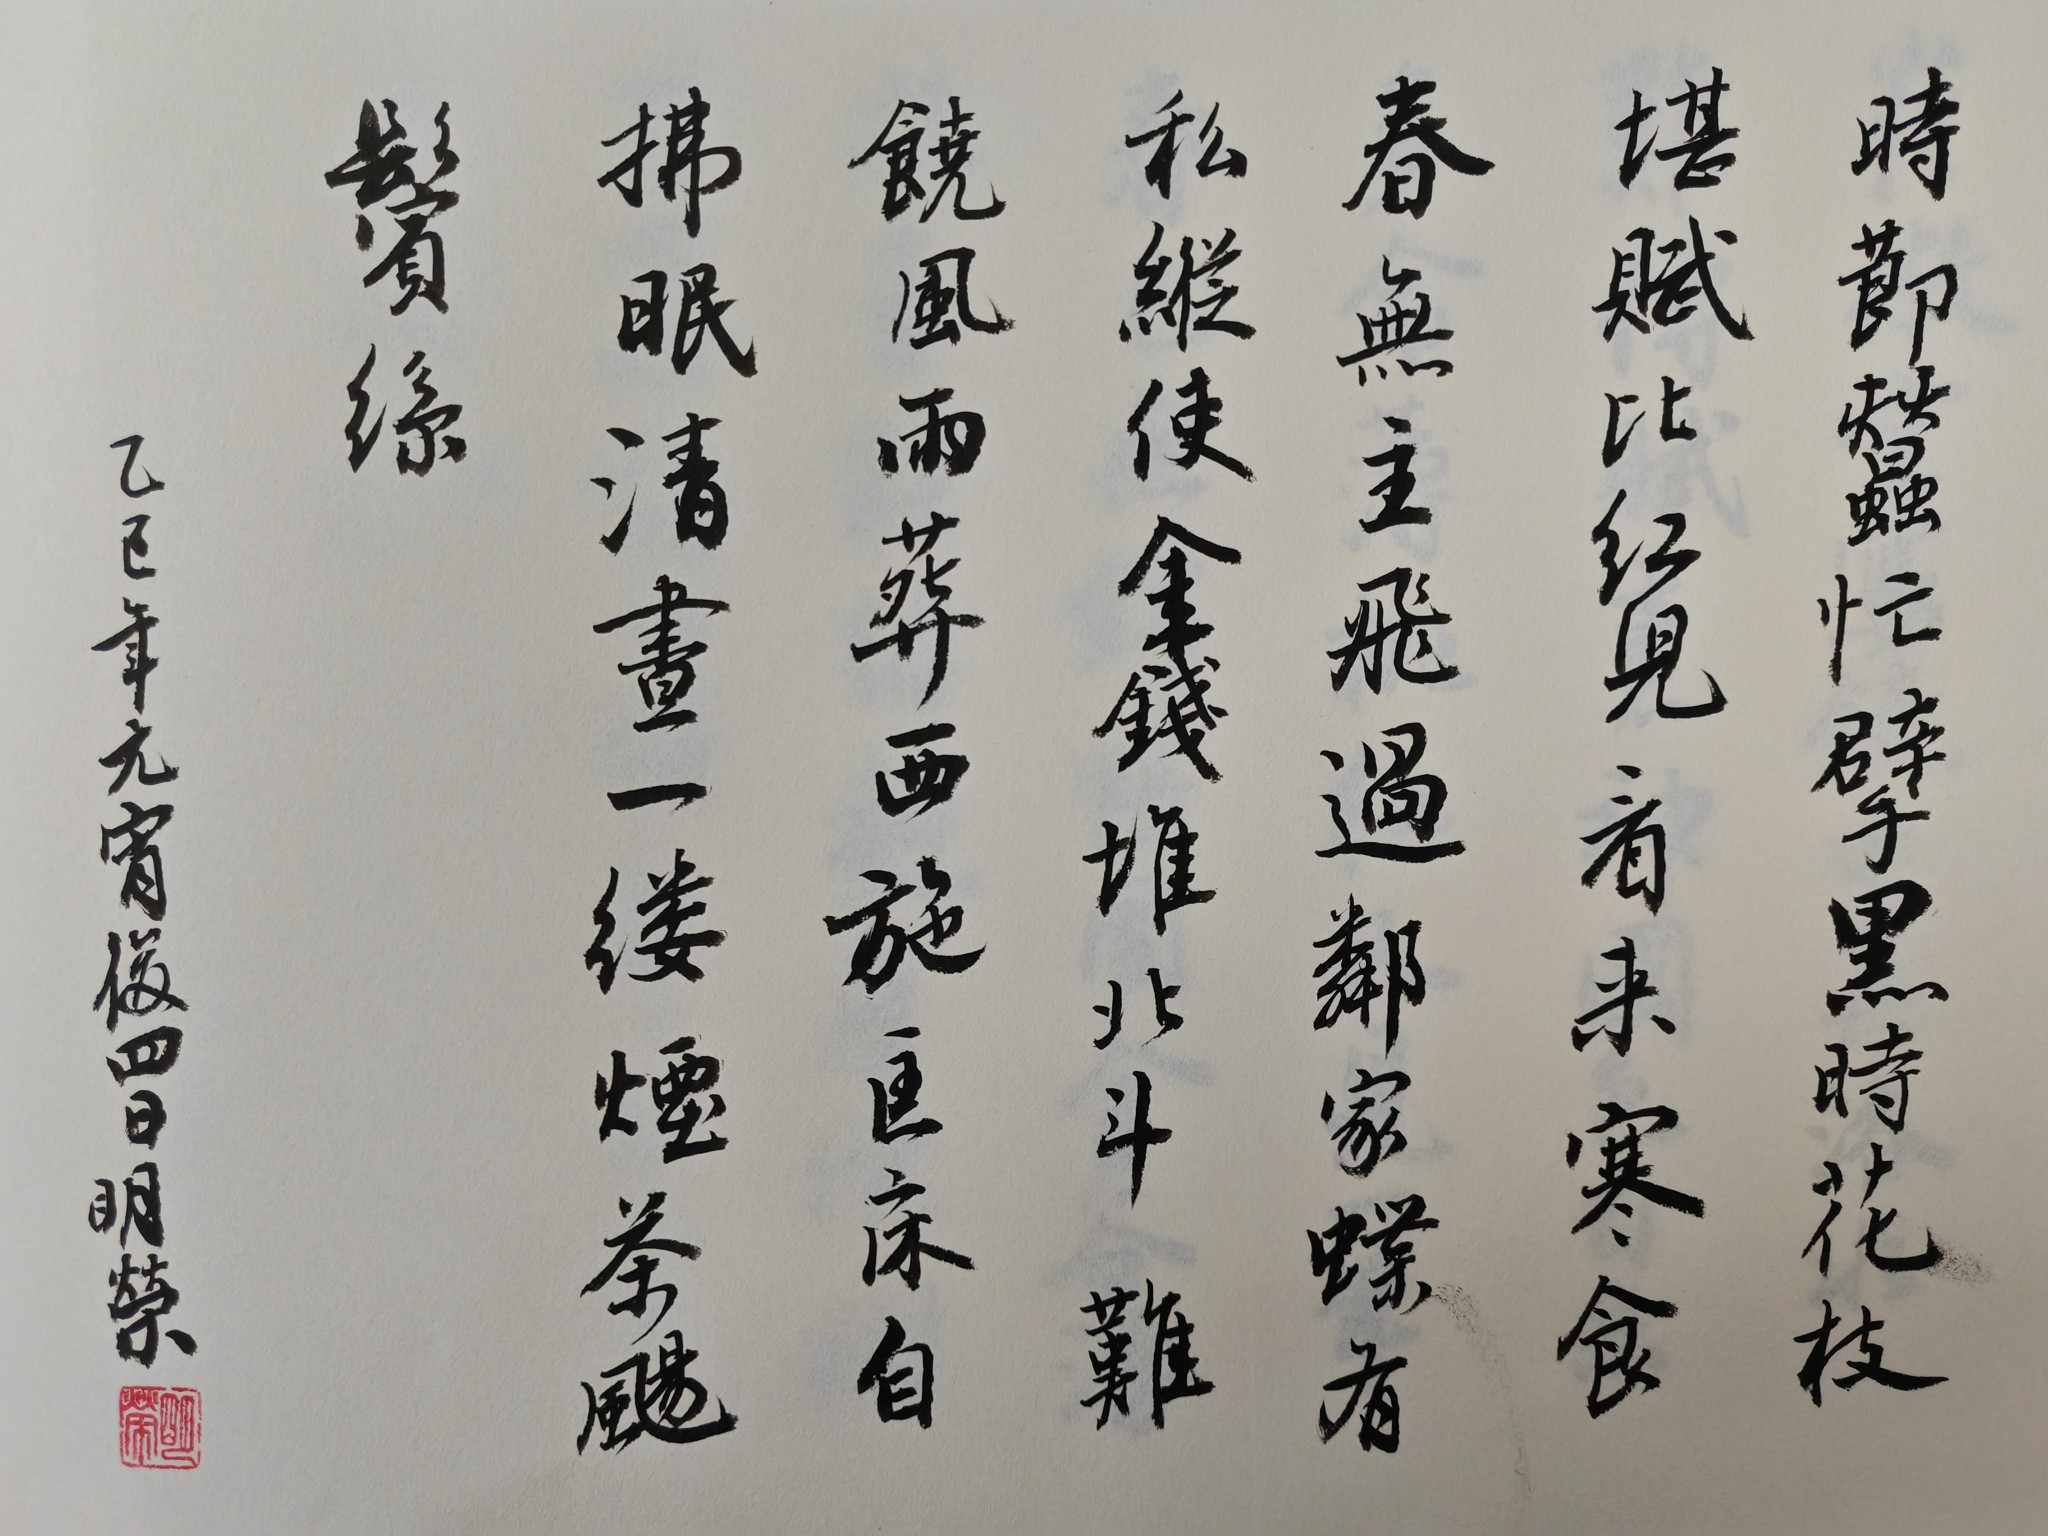 時節蠶忙擘黑時花枝
堪賦比紅兒看来寒食
春無主飛過鄰家蝶有
私縱使金錢堆北斗難
饒風雨葬西施匡床自
拂眠清晝一缕煙茶颺
鬢絲
乙巳年元宵後四日明榮
明榮